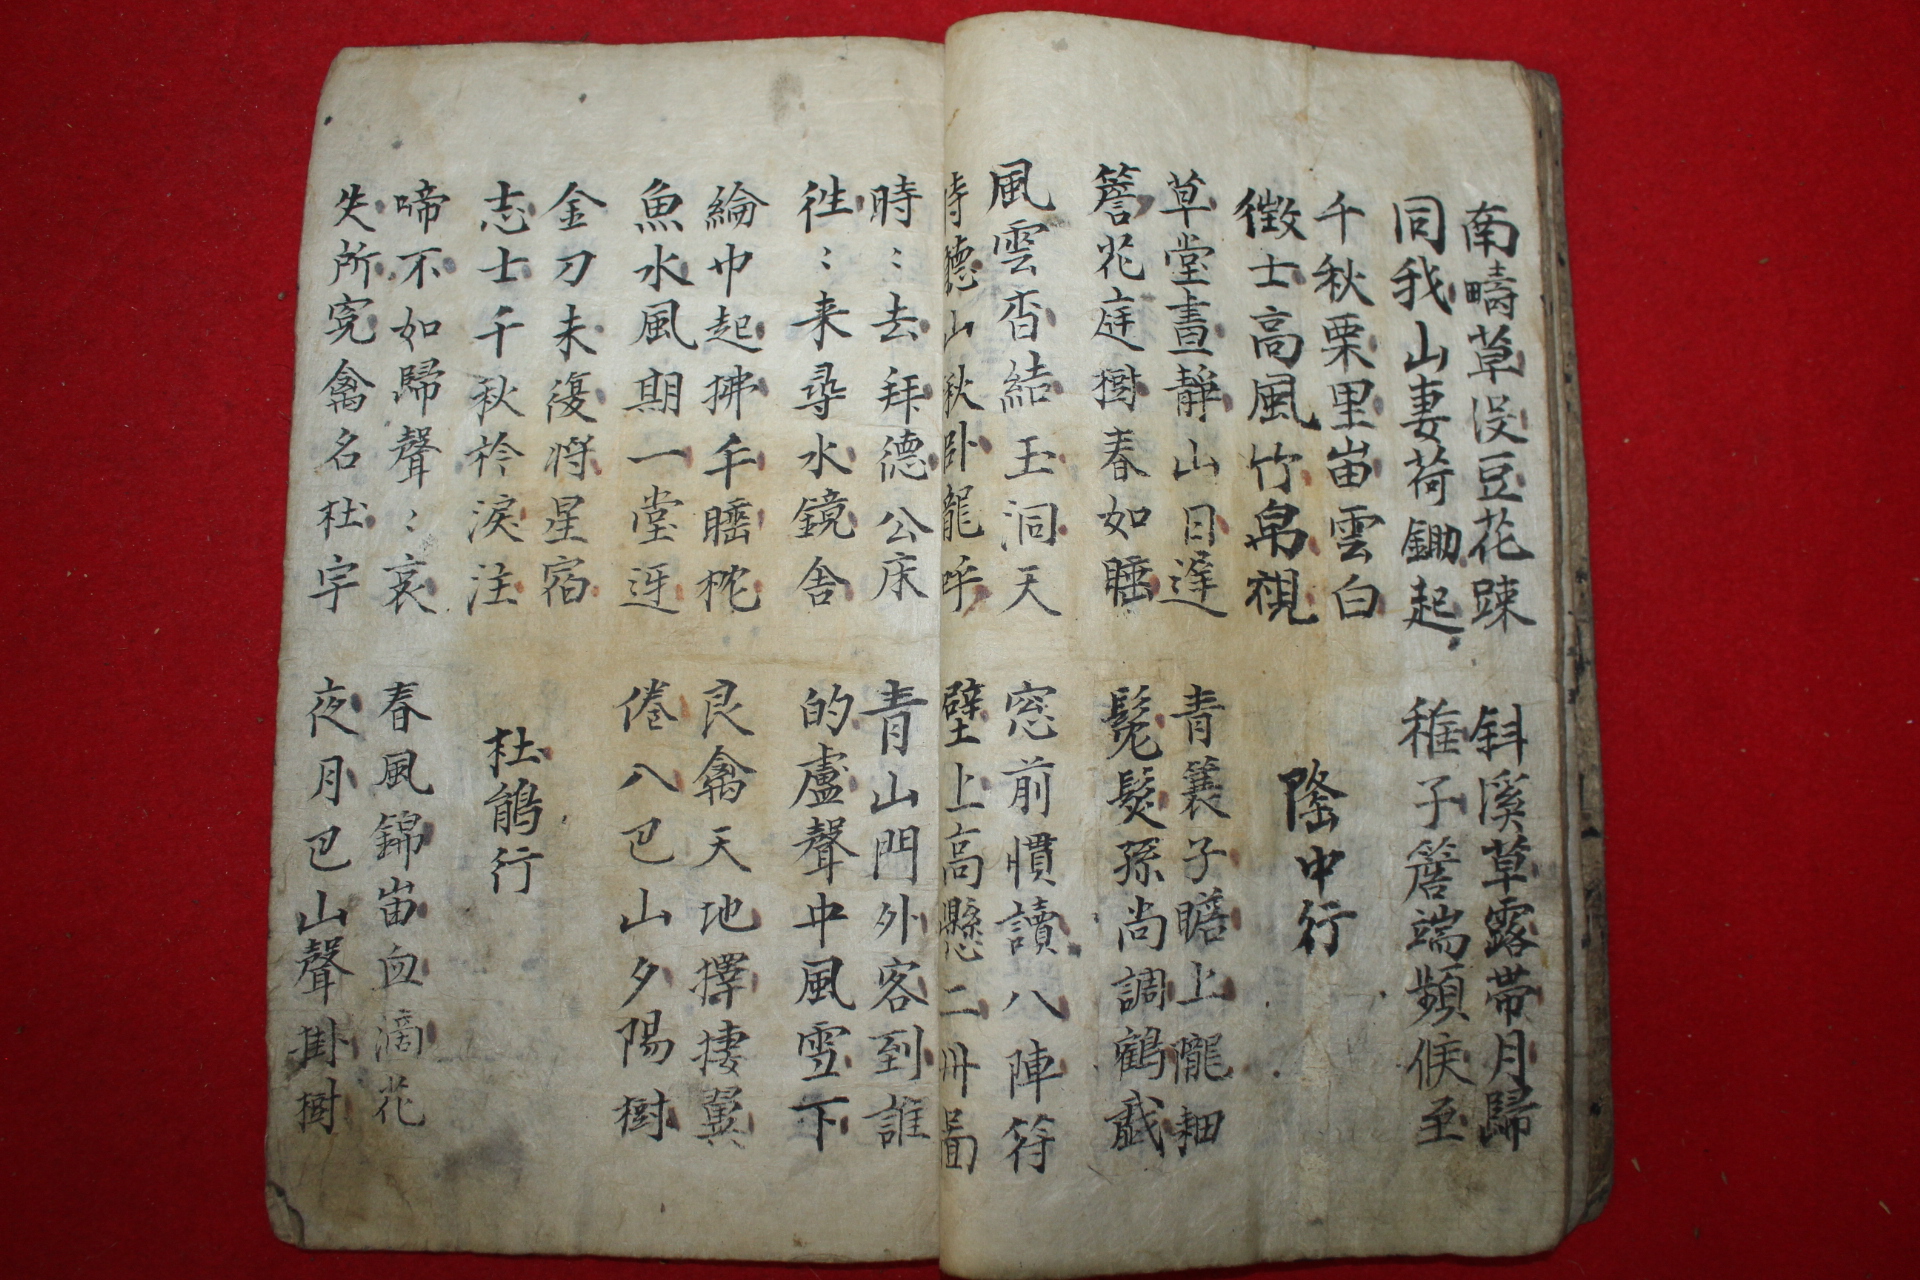 南疇草沒豆花踈
斜溪草露帶月歸
同我山妻荷鋤起
稚子簷端頻候至
千秋栗里畄雲白
徵士高風竹帛視
隆中行
草堂晝靜山日遲
青蓑子瞻上隴細
簷花庭樹春如睡
髮孫尚調鶴戲
風雲香結玉洞天
窓前慣讀八陣符
時聽山秋卧龍呼
壁上高懸二州圖
時〻去拜德公床
青山門外客到誰
徃〻来尋水鏡舎
的盧聲中風雪下
綸巾起拂千睡枕
良禽天地擇捿翼
魚水風期一堂迓
倦八巴山夕陽樹
金刀未復將星宿
志士千秋衿淚注
杜鵑行
啼不如歸聲〻哀
春風錦畄血滴花
失所寃禽名杜宇
夜月巴山聲掛樹